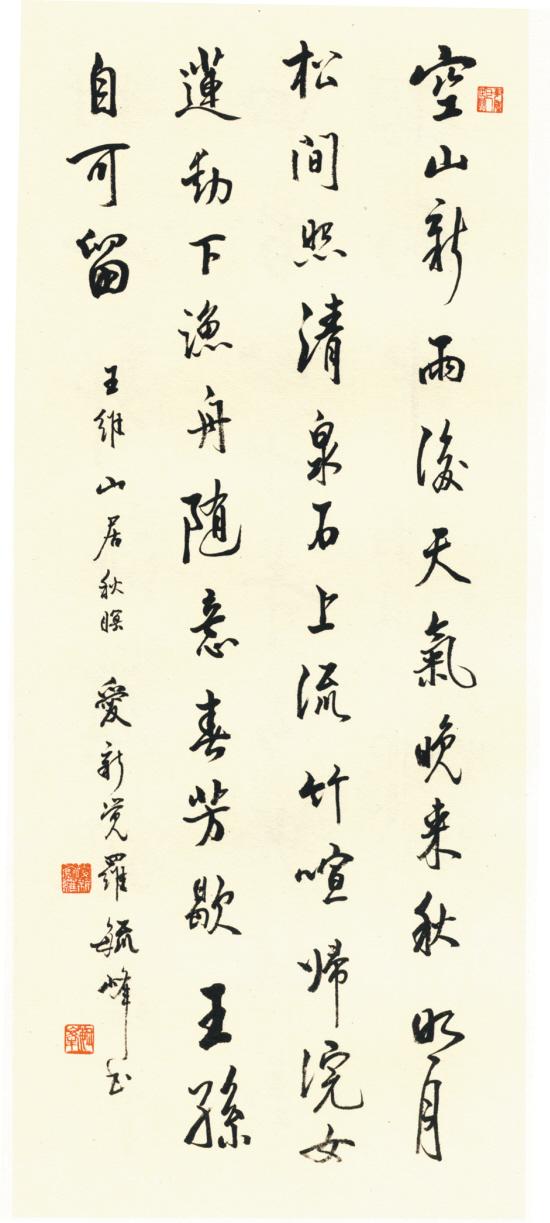 空山新雨後天氣晚来秋明月
松间照清泉石上流竹喧帰浣女
蓮動下漁舟随意春芳歇王孫
自可留 王維山居秋暝 愛新觉羅毓峰书